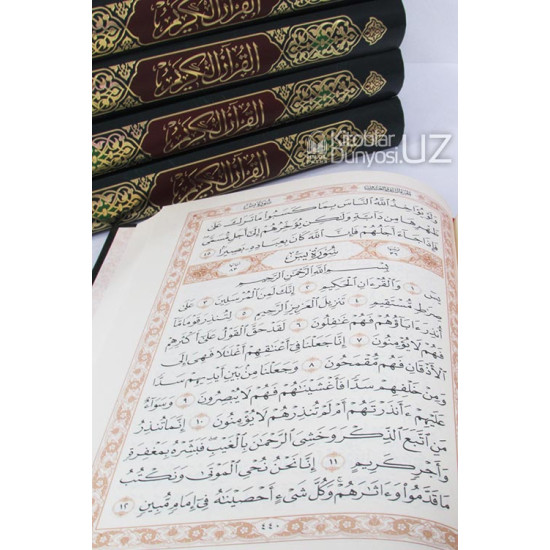 القرآن الكريم
القرآن الكريم
القرآن الكريم
القرآن الكريم
Kitoblar
Dunyosi.UZ
وَلَوْ يُؤَاخِذُ ٱللَّهُ ٱلنَّاسَ بِمَا كَسَبُوا۟ مَا تَرَكَ عَلَىٰ
ظَهْرِهَا مِن دَآبَّةٍ وَلَٰكِن يُؤَخِّرُهُمْ إِلَىٰٓ أَجَلٍ مُّسَمًّى
فَإِذَا جَآءَ أَجَلُهُمْ فَإِنَّ ٱللَّهَ كَانَ بِعِبَادِهِۦ بَصِيرًۢا ٤٥
سُورَةُ يسٓ
بِسْمِ ٱللَّهِ ٱلرَّحْمَٰنِ ٱلرَّحِيمِ
يسٓ ١ وَٱلْقُرْءَانِ ٱلْحَكِيمِ ٢ إِنَّكَ لَمِنَ ٱلْمُرْسَلِينَ ٣ عَلَىٰ
صِرَٰطٍ مُّسْتَقِيمٍ ٤ تَنزِيلَ ٱلْعَزِيزِ ٱلرَّحِيمِ ٥ لِتُنذِرَ قَوْمًا مَّآ
أُنذِرَ ءَابَآؤُهُمْ فَهُمْ غَٰفِلُونَ ٦ لَقَدْ حَقَّ ٱلْقَوْلُ عَلَىٰٓ أَكْثَرِهِمْ
فَهُمْ لَا يُؤْمِنُونَ ٧ إِنَّا جَعَلْنَا فِىٓ أَعْنَٰقِهِمْ أَغْلَٰلًا فَهِىَ إِلَى
ٱلْأَذْقَانِ فَهُم مُّقْمَحُونَ ٨ وَجَعَلْنَا مِنۢ بَيْنِ أَيْدِيهِمْ سَدًّا
وَمِنْ خَلْفِهِمْ سَدًّا فَأَغْشَيْنَٰهُمْ فَهُمْ لَا يُبْصِرُونَ ٩ وَسَوَآءٌ
عَلَيْهِمْ ءَأَنذَرْتَهُمْ أَمْ لَمْ تُنذِرْهُمْ لَا يُؤْمِنُونَ ١٠ إِنَّمَا تُنذِرُ
مَنِ ٱتَّبَعَ ٱلذِّكْرَ وَخَشِىَ ٱلرَّحْمَٰنَ بِٱلْغَيْبِ ۖ فَبَشِّرْهُ بِمَغْفِرَةٍ
وَأَجْرٍ كَرِيمٍ ١١ إِنَّا نَحْنُ نُحْىِ ٱلْمَوْتَىٰ وَنَكْتُبُ
مَا قَدَّمُوا۟ وَءَاثَٰرَهُمْ ۚ وَكُلَّ شَىْءٍ أَحْصَيْنَٰهُ فِىٓ إِمَامٍ مُّبِينٍ ١٢
٤٤٠